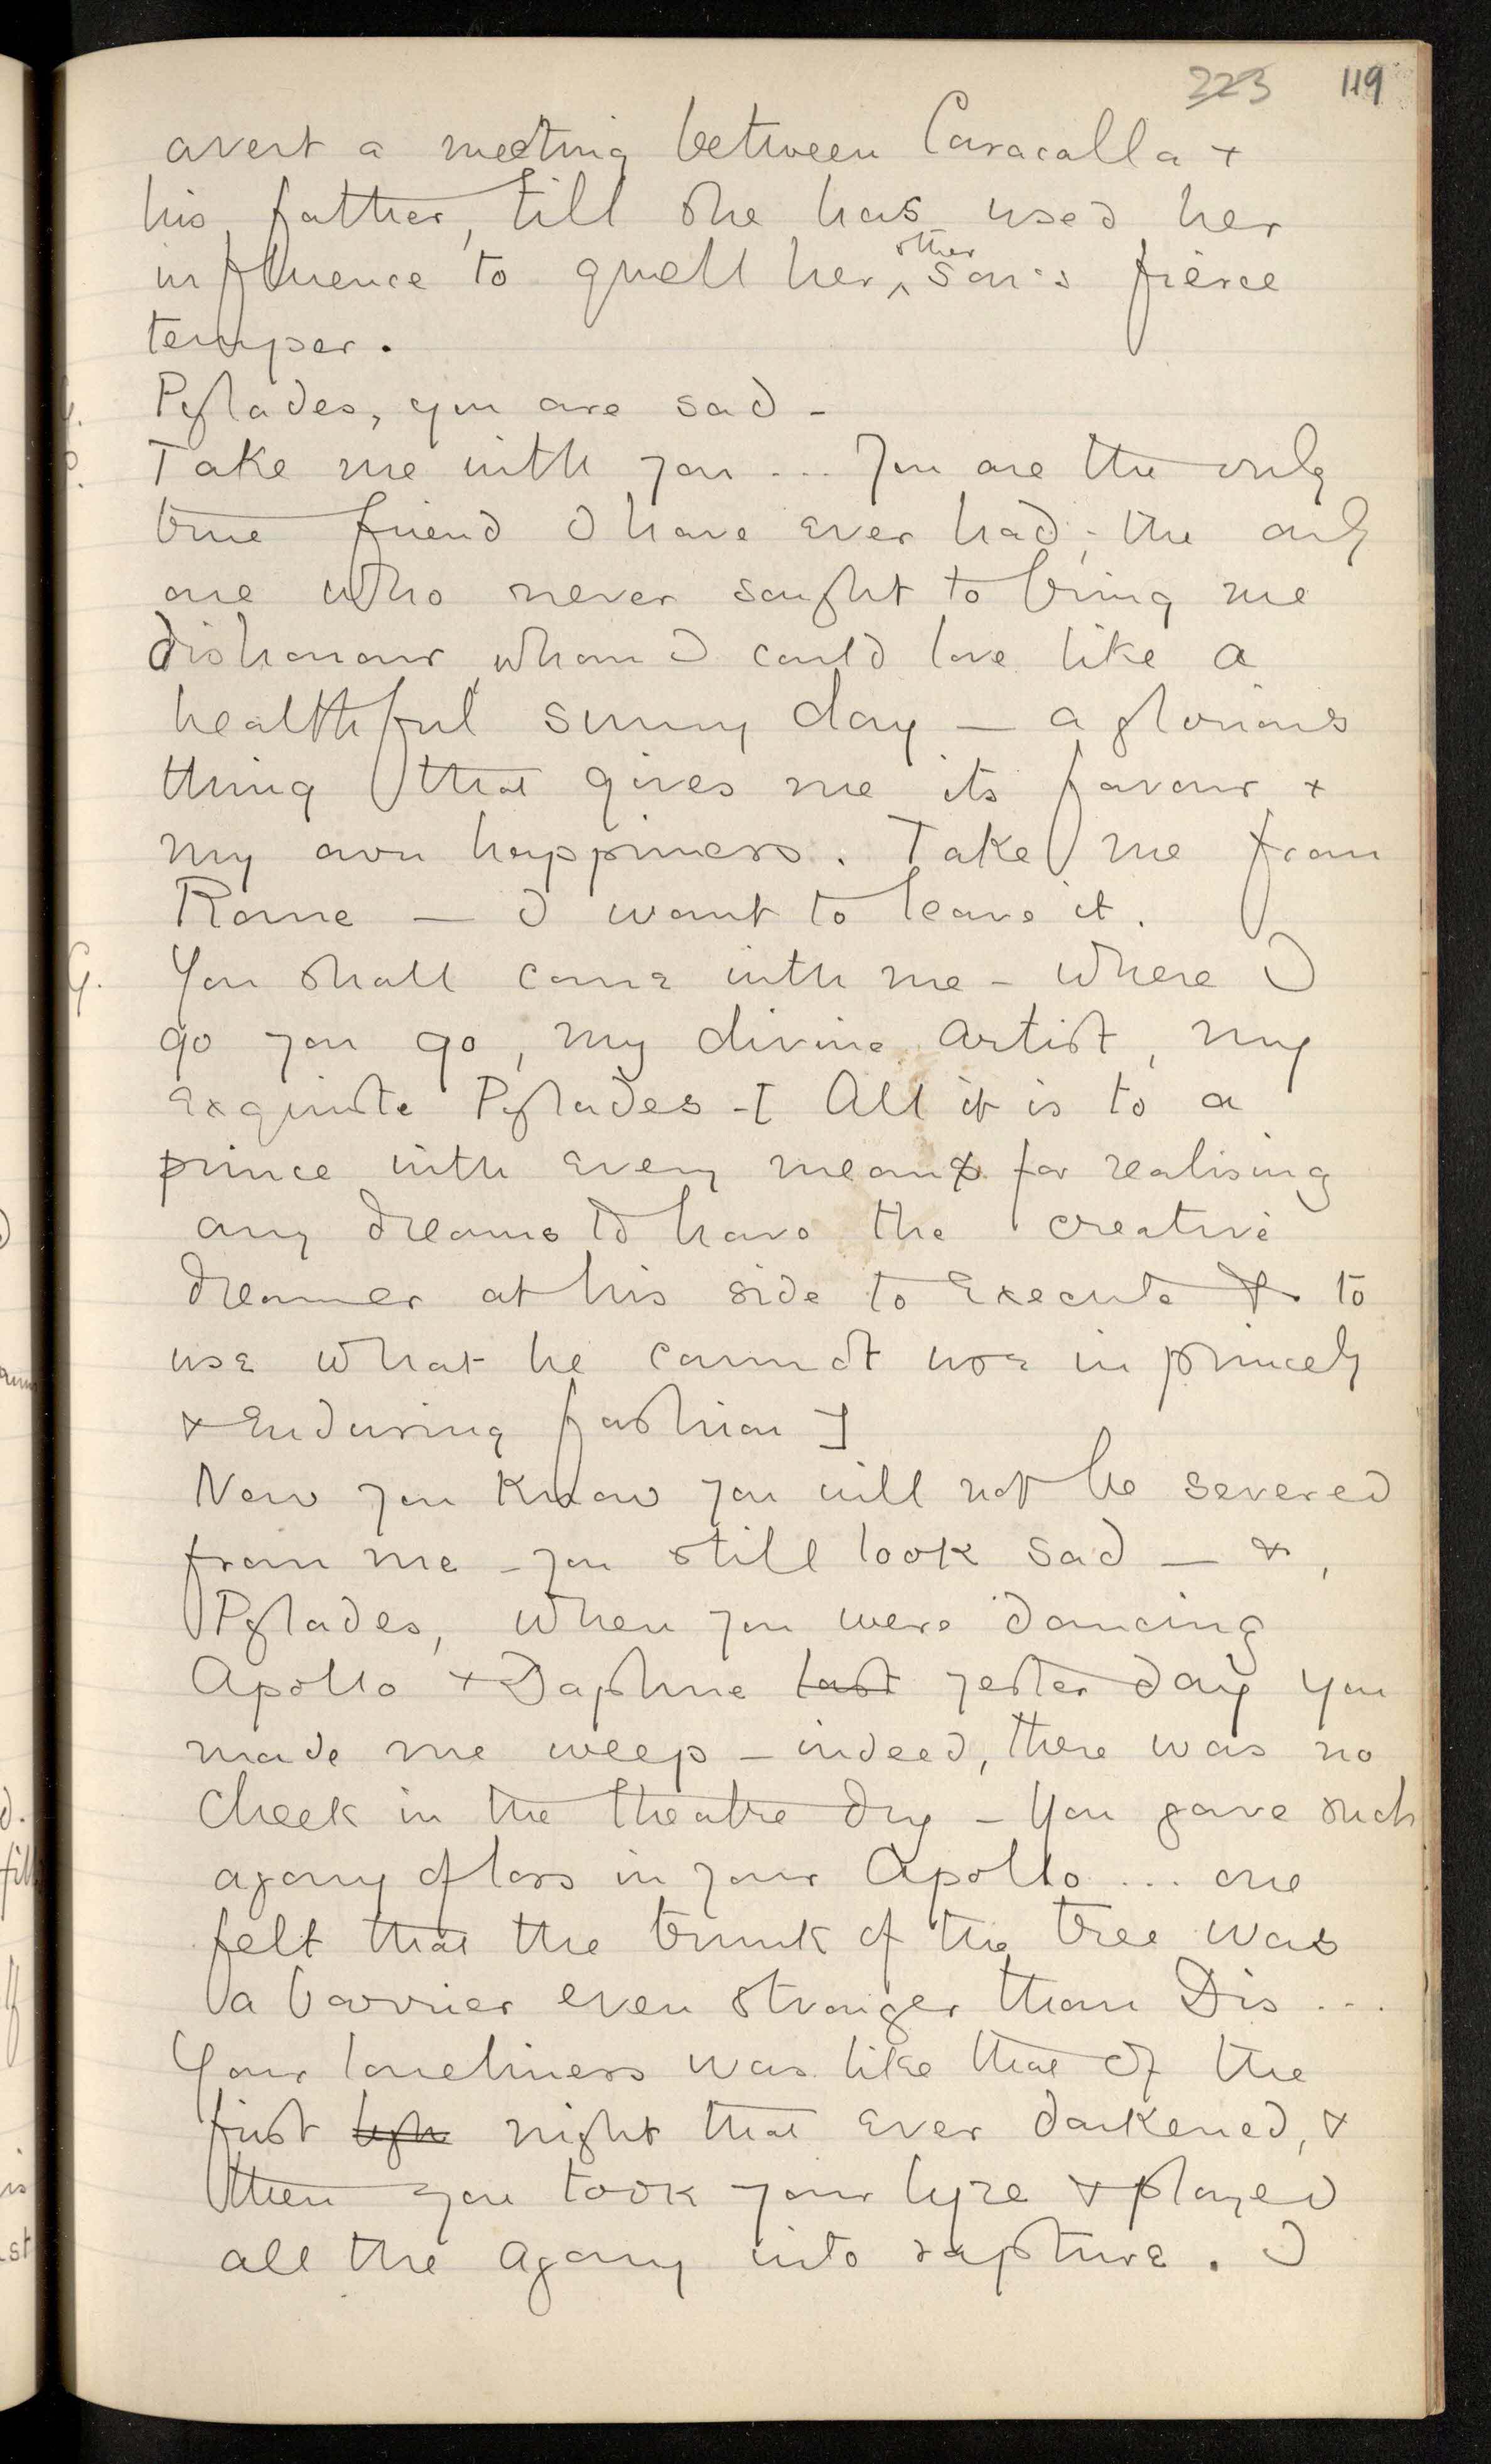 223 119
avert a meeting between Caracalla &
his father, till she has used her
influence to quell her ^other son's fierce
temper.
G. Pylades, you are sad -
P. Take me with you ... You are the only
true friend I have ever had; the only
one who never sought to bring me
dishonour, whom I could love like a
healthful sunny day — a glorious
thing that gives me its favour &
my own happiness. Take me from
Rome — I want to leave it.
G. You shall come with me - where I
go you go, my divine artist, my
exquisite Pylades - [ All it is to a
prince with every means for realising
any dreams to have the creative
dreamer at his side to execute & to
use what he cannot use in princely
& enduring fashion ]
Now you know you will not be severed
from me - you still look sad — &,
Pylades, when you were dancing
Apollo & Daphne last yesterday you
made me weep - indeed, there was no
cheek in the theatre dry - You gave such
agony of loss in your Apollo ... one
felt that the trunk of the tree was
a barrier even stronger than Dis ...
Your loneliness was like that of the
first ligh night that ever darkened, &
then you took your lyre & played
all the agony into rapture. I